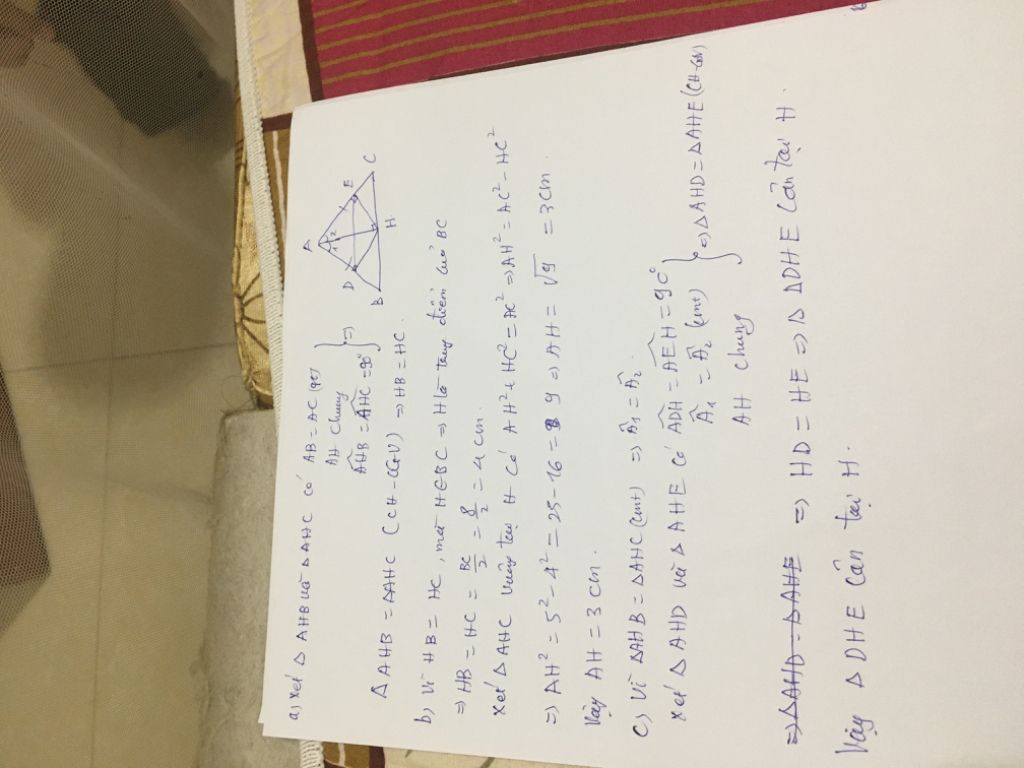 a) Xét Δ AHB và Δ AHC có AB = AC (gt)
AH chung
AHB = AHC = 90°
} =>
Δ AHB = ΔAHC (CH-CGV) => HB = HC.
A
1 2
D
E
B
H
C
b) Vì HB = HC, mà H∈BC => H là trung điểm của BC
=> HB = HC = BC/2 = 8/2 = 4 cm.
Xét Δ AHC vuông tại H có AH² + HC² = AC² => AH² = AC² - HC²
=> AH² = 5² - 4² = 25 - 16 = 9 => AH = √9 = 3 cm.
Vậy AH = 3 cm.
c) Vì ΔAHB = ΔAHC (cmt) => Â1 = Â2
Xét Δ AHD và Δ AHE có ADH = AEH = 90°
Â1 = Â2 (cmt)
AH chung
} => ΔAHD = ΔAHE (CH-GN)
=> ΔAHD = ΔAHE => HD = HE => Δ DHE cân tại H.
Vậy Δ DHE cân tại H.